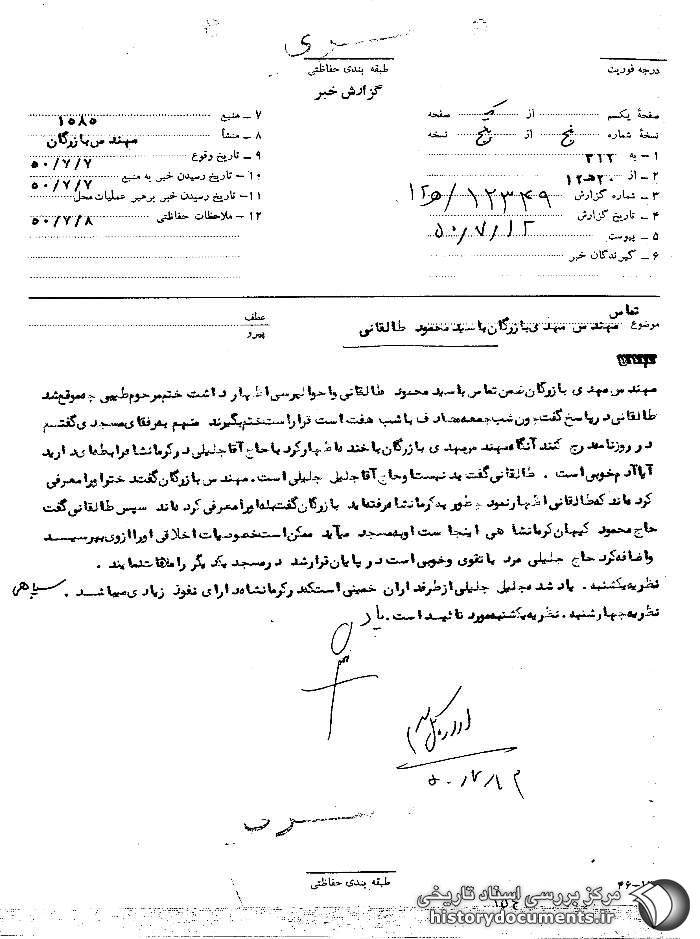 سری
درجه فوریت
طبقه بندی حفاظتی
گزارش خبر
صفحهٔ یکسم از یک صفحه
نسخهٔ شماره پنج از پنج نسخه
۱ – به ۳۱۲
۲ – از ۲۰هـ۱۲
۳ – شماره گزارش ۱۲۳۴۹/
۴ – تاریخ گزارش ۵۰/۷/۱۲
۵ – پیوست
۶ – گیرندگان خبر
۷ – منبع ۱۵۸۵
۸ – منشأ مهندس بازرگان
۹ – تاریخ وقوع ۵۰/۷/۷
۱۰ – تاریخ رسیدن خبر به منبع ۵۰/۷/۷
۱۱ – تاریخ رسیدن خبر برهبر عملیات محل
۱۲ – ملاحظات حفاظتی ۵۰/۷/۸
موضوع تماس مهندس مهدی بازرگان با سید محمود طالقانی
عطف
پیرو
مهندس مهدی بازرگان ضمن تماس با سید محمود طالقانی و احوالپرسی اظهار داشت ختم مرحوم طبیبی چه موقع شد
طالقانی در پاسخ گفت چون شب جمعه مصادف با شب هفت است قرار است ختم بگیرند منهم به رفقای مسجدی گفتم
در روزنامه درج کنند آنگاه مهندس مهدی بازرگان با خنده اظهار کرد با حاج آقا جلیلی در کرمانشاه رابطه ای دارید
آیا آدم خوبی است . طالقانی گفت بد نیست او حاج آقا جلیل جلیلی است . مهندس بازرگان گفت دختر او را معرفی
کرده اند که طالقانی اظهار نمود چطور به کرمانشاه رفته اید بازرگان گفت بله او را معرفی کرده اند سپس طالقانی گفت
حاج محمود کیهان کرمانشاهی اینجاست او به مسجد میآید ممکن است خصوصیات اخلاقی او را از وی بپرسید
و اضافه کرد حاج جلیلی مرد با تقوی و خوبی است در پایان قرار شد در مسجد یکدیگر را ملاقات نمایند .
نظریه یکشنبه . یاد شده جلیل جلیلی از طرفداران خمینی است که در کرمانشاه دارای نفوذ زیادی میباشد . سپاهی
نظریه چهارشنبه . نظریه یکشنبه مورد تائید است .
۵۰/۷/۱۳
سری
طبقه بندی حفاظتی
مرکز بررسی اسناد تاریخی
historydocuments.ir